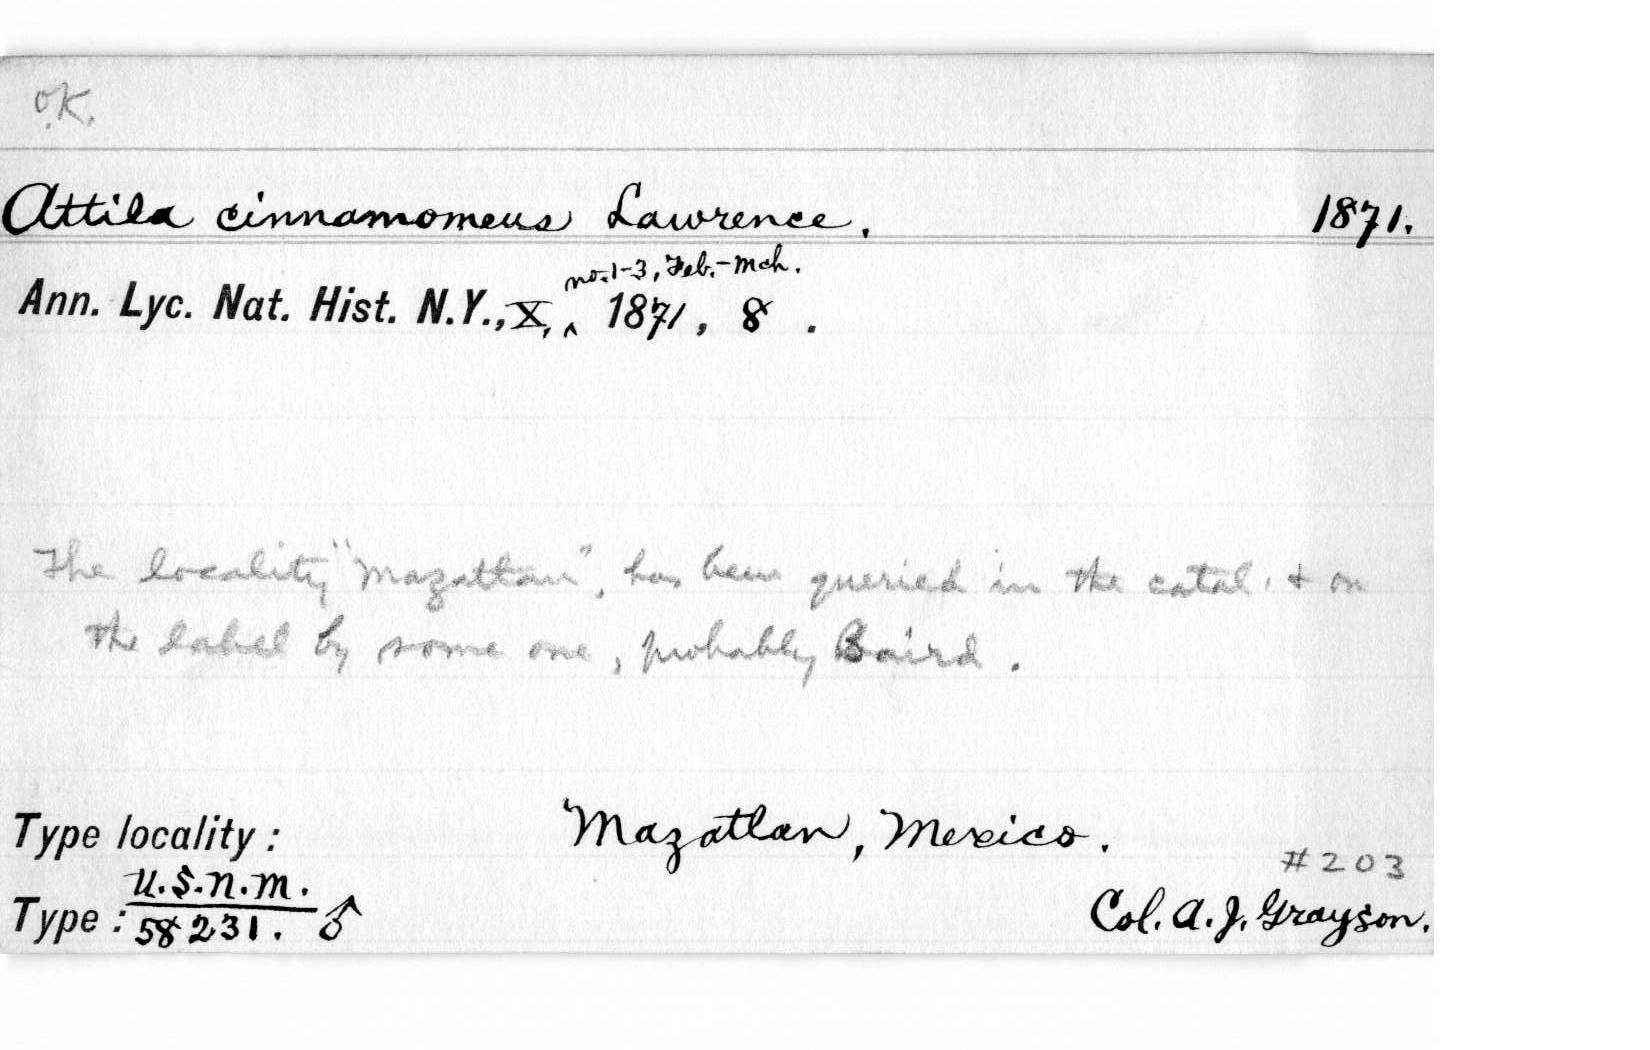 O.K.
Attila cinnamomeus Lawrence. 1871.
no. 1-3, Feb.-Mch.
Ann. Lyc. Nat. Hist. N.Y., X, ^ 1871, 8 .
The locality "Mazatlan", has been queried in the catal. & on
the label by some one, probably Baird.
Type locality: Mazatlan, Mexico.
#203
U.S.N.M.
Type: 58231. ♂ Col. A. J. Grayson.